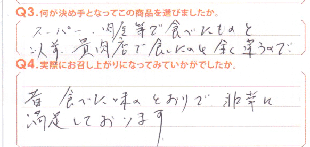 Q3.何が決め手となってこの商品を選びましたか。
スーパー、肉屋等で食べたものと
以前貴肉店で食したのと全く違うので
Q4.実際にお召し上がりになってみていかがでしたか。
昔食べた味のとおりで非常に
満足しております